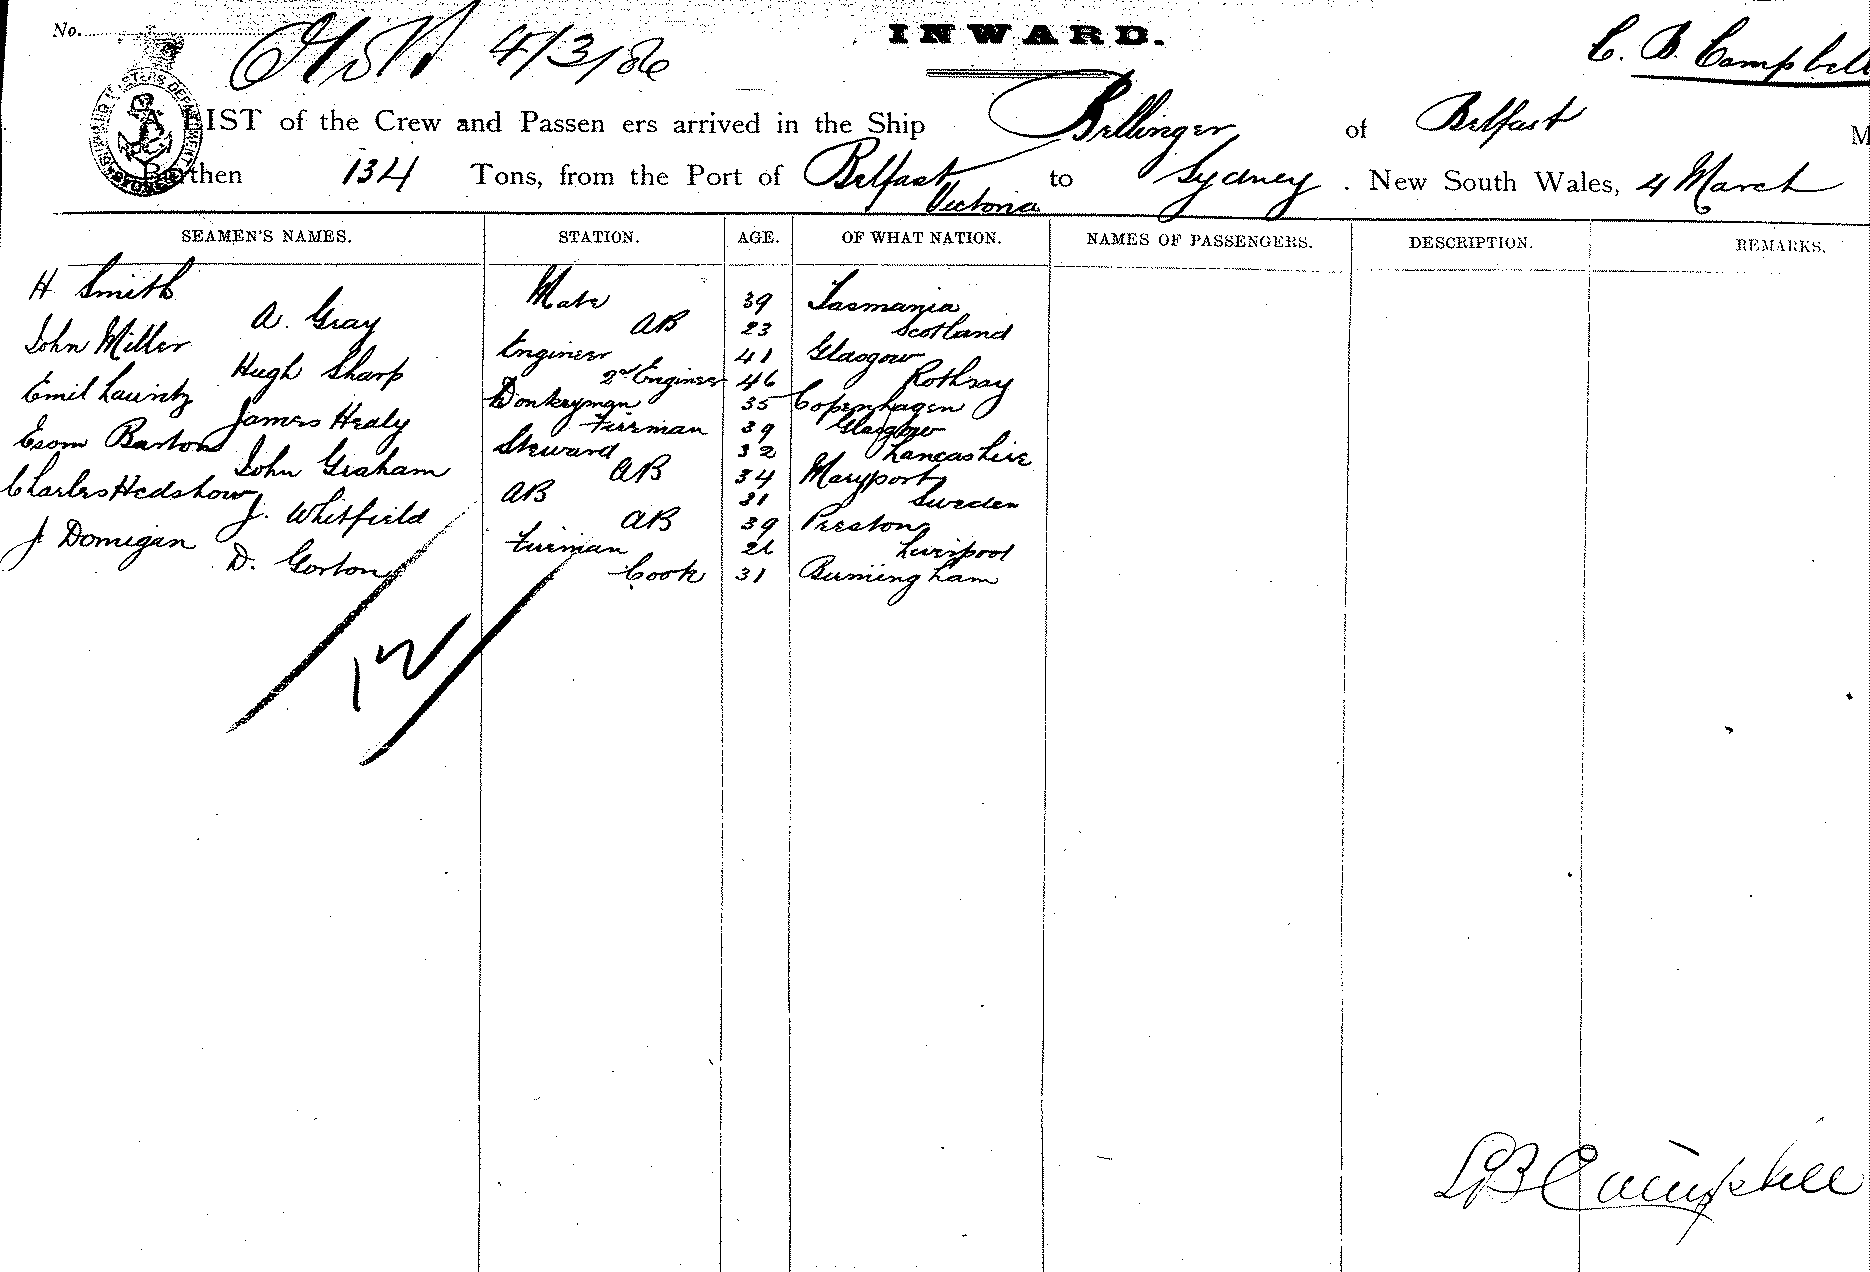 No. 4/3/86
INWARD.
C. B. Campbell
A LIST of the Crew and Passen ers arrived in the Ship Bellinger of Belfast M
Burthen 134 Tons, from the Port of Belfast Victoria to Sydney . New South Wales, 4 March
SEAMEN'S NAMES. STATION. AGE. OF WHAT NATION. NAMES OF PASSENGERS. DESCRIPTION. REMARKS.
H. Smith Mate 39 Tasmania
A. Gray AB 23 Scotland
John Miller Engineer 41 Glasgow
Hugh Sharp 2nd Engineer 46 Rothsay
Emil Lauritz Donkeyman 35 Copenhagen
James Healy Fireman 39 Glasgow
Esom Barton Steward 32 Lancashire
John Graham AB 34 Maryport
Charles Hedshow AB 31 Sweden
J. Whitfield AB 39 Preston
J Domigan Fireman 26 Liverpool
D. Gorton Cook 31 Birmingham
12
Campbell